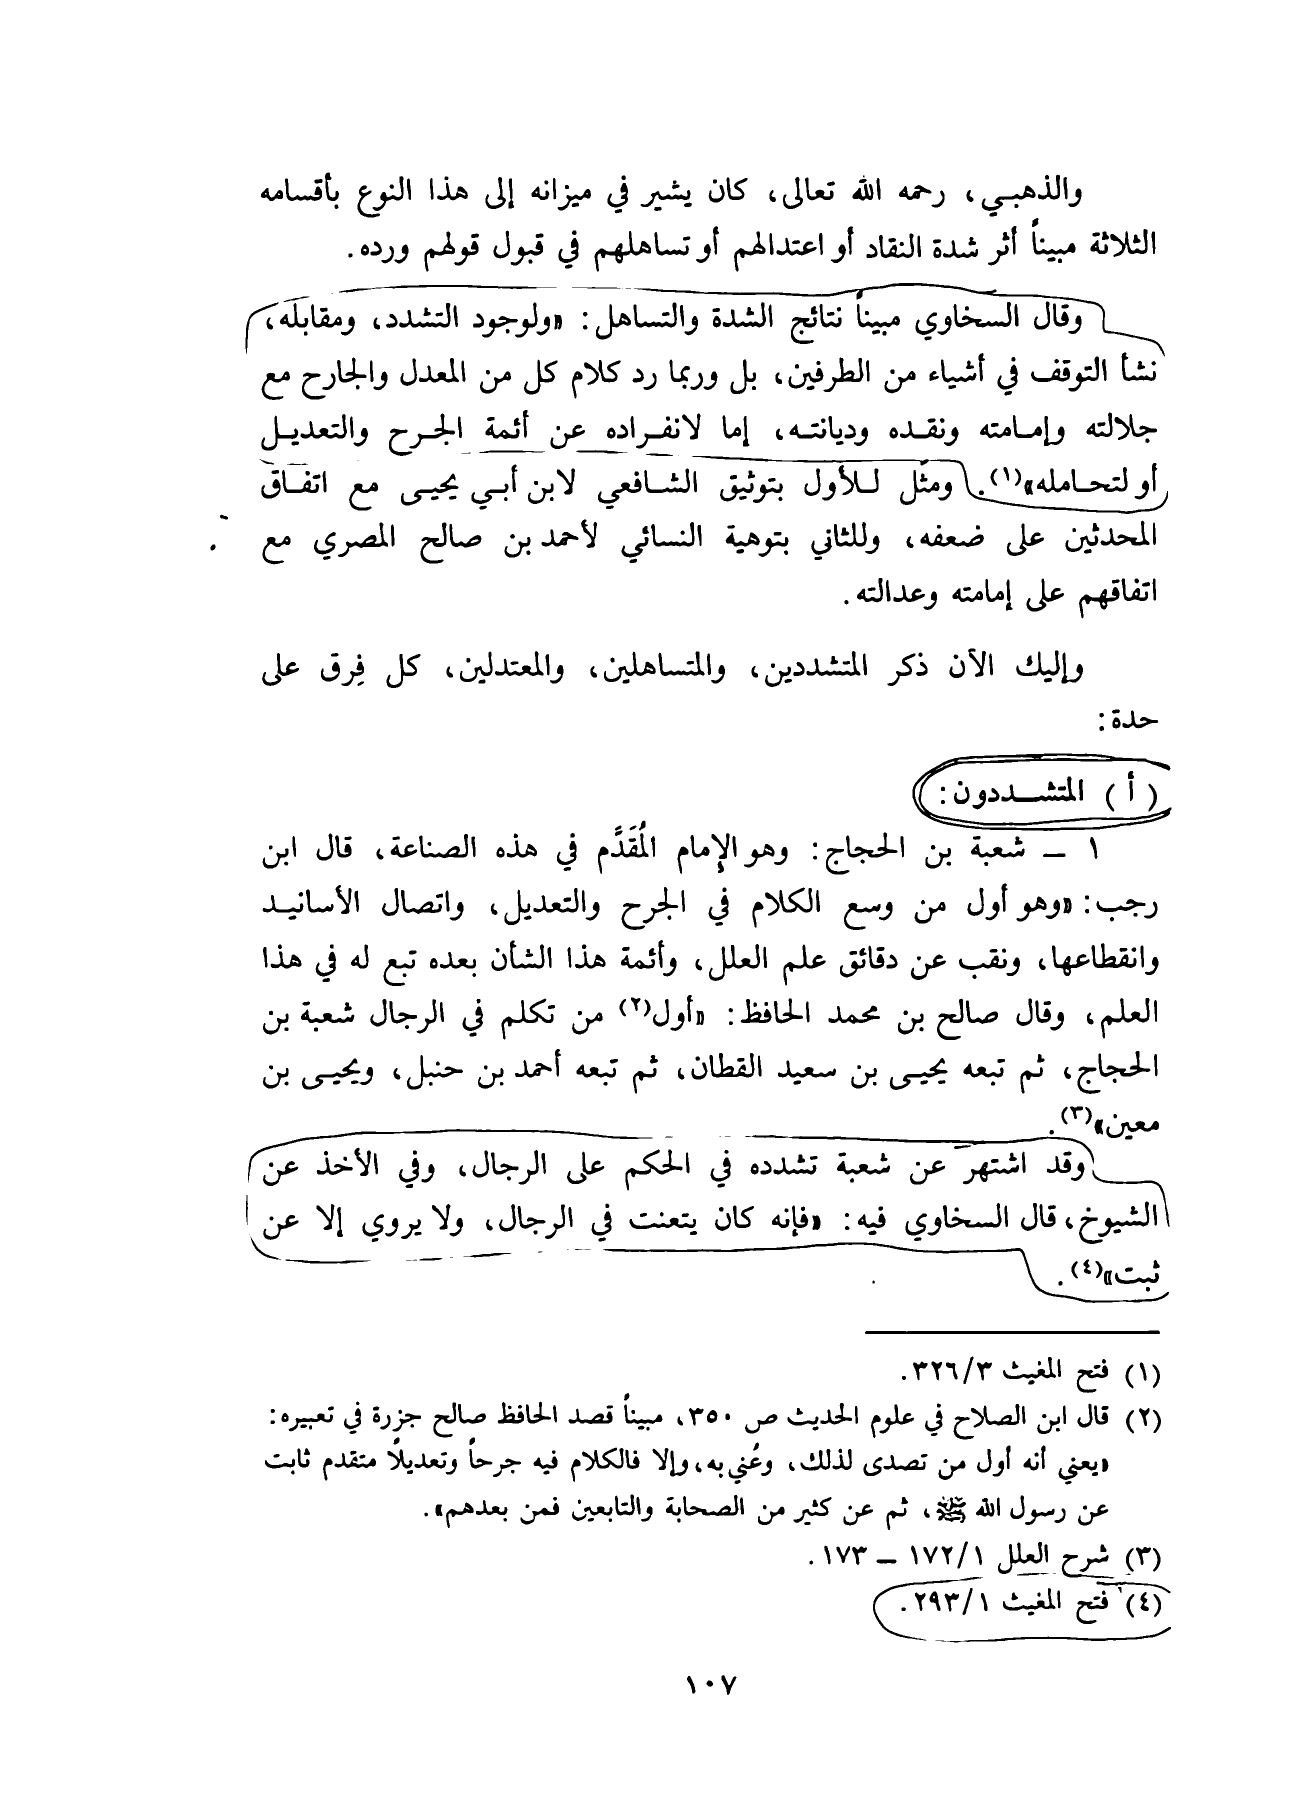 والذهبـي، رحمه الله تعالى، كان يشير في ميزانه إلى هذا النوع بأقسامه
الثلاثة مبيناً أثر شدة النقاد أو اعتدالهم أو تساهلهم في قبول قولهم ورده.
وقال السخاوي مبيناً نتائج الشدة والتساهل: «ولوجود التشدد، ومقابله،
نشأ التوقف في أشياء من الطرفين، بل وربما رد كلام كل من المعدل والجارح مع
جلالته وإمـامته ونقـده وديانتـه، إما لانفـراده عن أئمة الجـرح والتعديـل
أو لتحـامله»(١). ومثّل لـلأول بتوثيق الشـافعي لابن أبـي يحيـى مع اتفـاق
المحدثين على ضعفه، وللثاني بتوهية النسائي لأحمد بن صالح المصري مع
اتفاقهم على إمامته وعدالته.
وإليك الآن ذكر المتشددين، والمتساهلين، والمعتدلين، كل فِرق على
حدة:
(أ) المتشـــددون:
١ ــ شعبة بن الحجاج: وهو الإمام المُقَدَّم في هذه الصناعة، قال ابن
رجب: «وهو أول من وسع الكلام في الجرح والتعديل، واتصال الأسانيـد
وانقطاعها، ونقب عن دقائق علم العلل، وأئمة هذا الشأن بعده تبع له في هذا
العلم، وقال صالح بن محمد الحافظ: «أول(٢) من تكلم في الرجال شعبة بن
الحجاج، ثم تبعه يحيـى بن سعيد القطان، ثم تبعه أحمد بن حنبل، ويحيـى بن
معين»(٣).
وقد اشتهر عن شعبة تشدده في الحكم على الرجال، وفي الأخذ عن
الشيوخ، قال السخاوي فيه: «فإنه كان يتعنت في الرجال، ولا يروي إلا عن
ثبت»(٤).
(١) فتح المغيث ٣٢٦/٣.
(٢) قال ابن الصلاح في علوم الحديث ص ٣٥٠، مبيناً قصد الحافظ صالح جزرة في تعبيره:
«يعني أنه أول من تصدى لذلك، وعُني به، وإلا فالكلام فيه جرحاً وتعديلاً متقدم ثابت
عن رسول الله ﷺ، ثم عن كثير من الصحابة والتابعين فمن بعدهم».
(٣) شرح العلل ١٧٢/١ ــ ١٧٣.
(٤) فتح المغيث ٢٩٣/١.
١٠٧